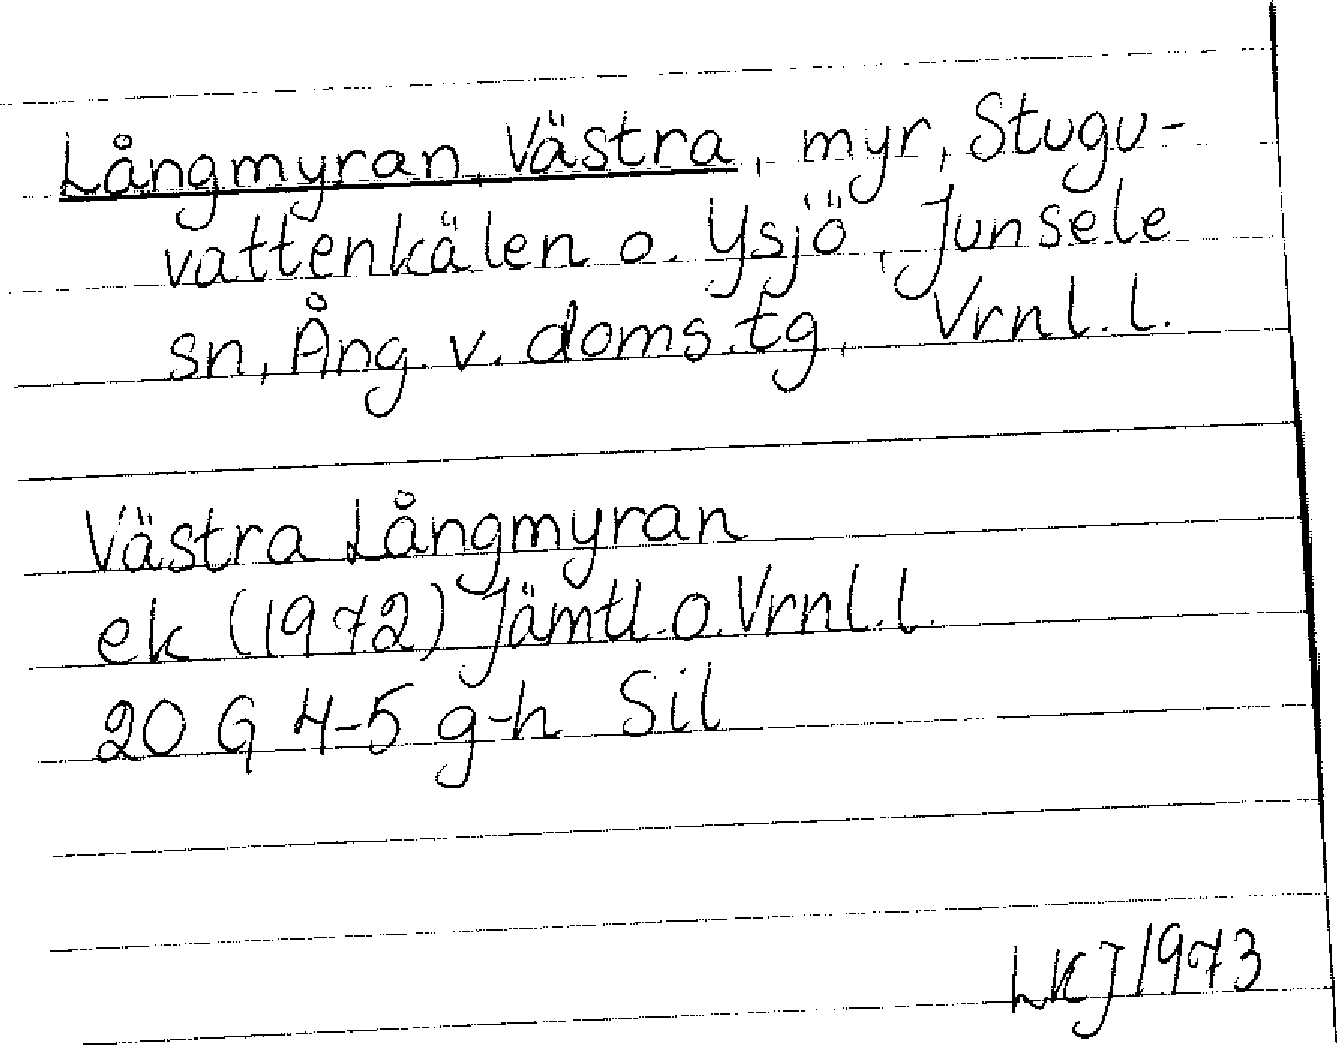 Långmyran, Västra, myr, Stugu-
vattenkälen o. Ysjö, Junsele
sn, Ång. v. doms. tg, Vrnl. l.
Västra Långmyran
ek (1972) Jämtl. o. Vrnl. l.
20 G 4-5 g-h Sil
LKJ 1973